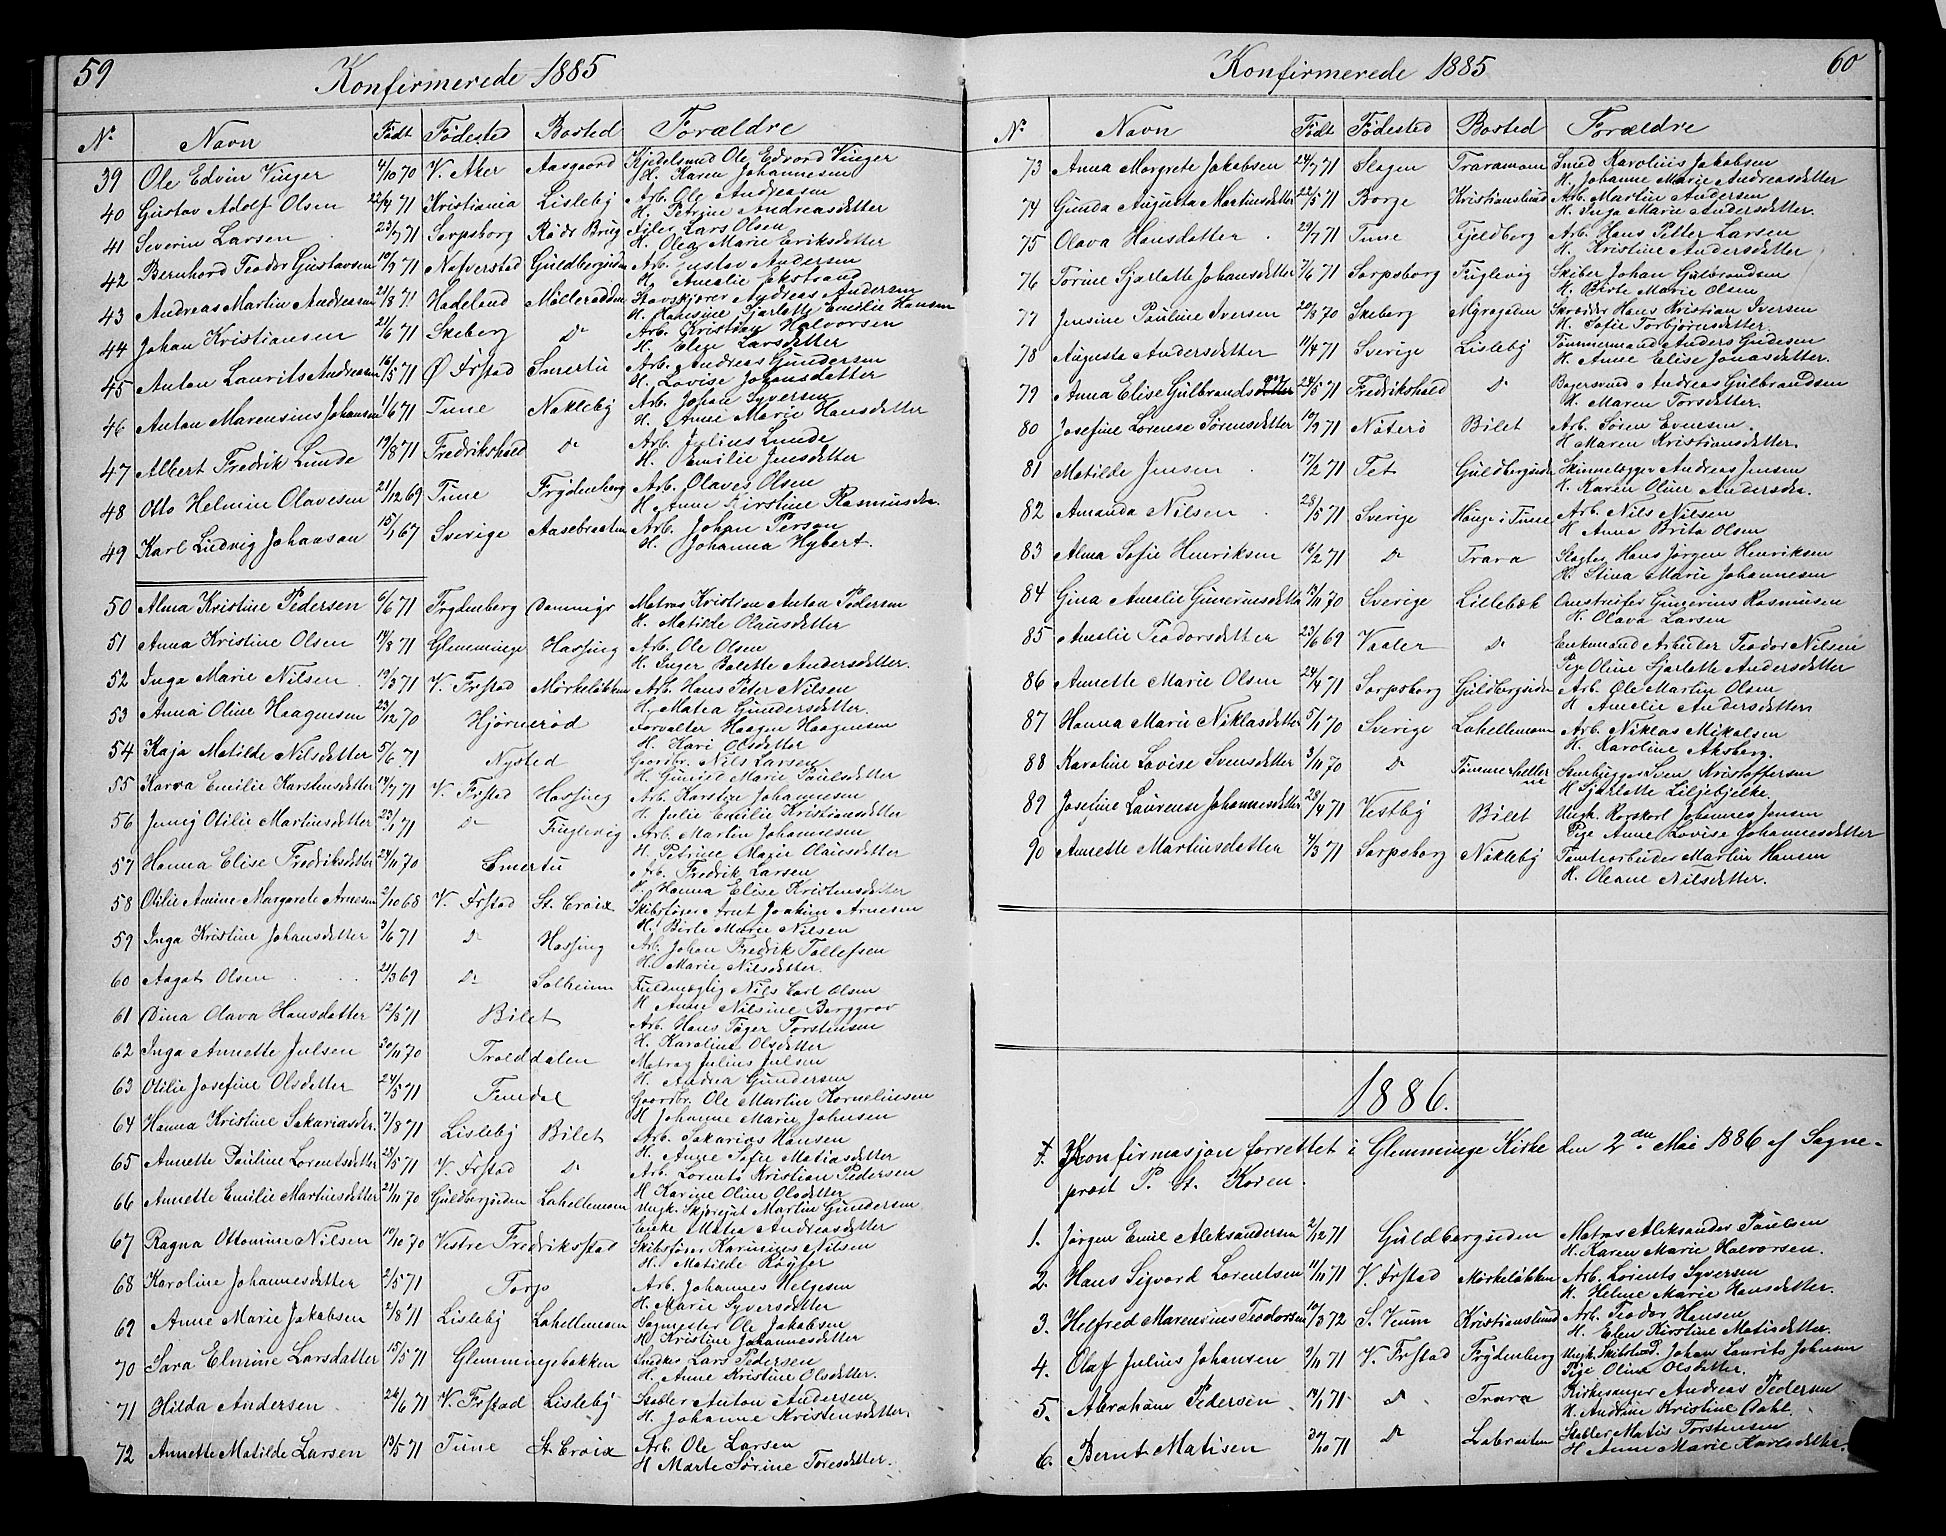 59
Konfirmerede 1885
Nr Navn Født Fødested Bosted Forældre
39 Ole Edvin Vinger 4/10 70 V. Aker Aasgaard Kjedelsmed Ole Edvard Vinger
H. Karen Johannesen
40 Gustav Adolf Olsen 22/4 71 Kristiania Lisleby Arb. Ole Andreasen
H. Petrine Andreasdetter
41 Severin Larsen 23/7 71 Sarpsborg Røds Brug Lars Olsen
H. Olea Marie Eriksdetter
42 Bernhard Teodor Gustavsen 71 Guldbergsiden Arb. Gustav Andersen
H. Amalie Ekstrand
43 Andreas Martin Andreasen 21/8 71 Hadeland Andreas Andersen
H. Hansine Sjarlotte Emilie Hansen
44 Johan Kristiansen 21/6 71 Skeberg Do Arb. Kristian Halvorsen
H. Elise Larsdetter
45 Anton Laurits Andreasen 16/5 71 Ø. Frstad Smertu Arb. Andreas Gundersen
H. Lovise Johansdetter
46 Anton Marensius Johansen 1/6 71 Tune Nokleby Arb. Johan Syversen
H. Anne Marie Hansdetter
47 Albert Fredrik Lunde 19/8 71 Fredrikshald Do Arb. Julius Lunde
H. Emilie Jensdetter
48 Otto Helmin Olavesen 21/12 69 Tune Frydenberg Arb. Olaves Olsen
H. Anne Kirstine Rasmusdtr.
49 Karl Ludvig Johanson 15/1 67 Sverige Aasebraaten Arb. Johan Person
H. Johanna Hybert.
50 Alma Kristine Pedersen 6/6 71 Frydenberg Matros Kristian Anton Pedersen
H. Matilde Olausdetter
51 Anna Kristine Olsen 14/8 71 Glemminge Hassing Arb. Ole Olsen
H. Inger Balette Andersdetter.
52 Inga Marie Nilsen 19/3 71 V. Frstad Mørkeløkken Arb. Hans Peter Nilsen
H. Matea Gundersdetter.
53 Anna Oline Haagensen 23/12 70 Hjørnerød Forvalter Haagen Haagensen
H. Kari Olsdetter
54 Kaja Matilde Nilsdetter 5/6 71 Nysted Gaardbr. Nils Larsen
H. Gunild Marie Paulsdetter
55 Karra Emilie Karstensdetter 14/7 71 V. Frstad Hassing Arb. Karsten Johannesen
H. Julie Emilie Kristiansdetter
56 Jenny Otilie Martinsdetter 23/1 71 Do Fuglevig Arb. Martin Johannesen
H. Petrine Marie Olausdetter
57 Hanna Elise Fredriksdetter 24/11 70 Smertu Arb. Fredrik Larsen
H. Hanna Elise Kristensdetter
58 Otilie Amine Margarete Arnesen 2/10 68 V. Frstad St. Croix Skibsfører Arnt Joakim Arnesen
H. Birte Marie Nilsen
59 Inga Kristine Johansdetter 3/6 71 Do Hassing Arb. Johan Fredrik Tollefsen
H. Marie Nilsdetter.
60 Aagot Olsen 21/3 69 Do Solheim Fuldmægtig Nils Carl Olsen
H. Anne Nilsine Borggrav
61 Dina Olava Hansdatter 12/3 71 Bilet Arb. Hans Tøger Torstensen
H. Karoline Olsdetter
62 Inga Annette Julsen 20/11 70 Trolddalen Matros Julius Julsen
H. Andrea Gundersen
63 Otilie Josefine Olsdetter 24/5 71 Tenedal Gaardbr. Ole Martin Kornelinsen
H. Johanne Marie Johnsen
64 Hanna Kristine Sakariasdtr. 7/8 71 Lisleby Bilet Arb. Sakarias Hansen
H. Anne Sofie Matiasdetter
65 Annette Pauline Lorentsdetter 23/5 71 V. Frstad Do Arb. Lorents Kristian Pedersen
H. Karine Oline Olsdetter
66 Annette Emilie Martinsdetter 21/11 70 Guldbergsiden Lahellemoen Ungk. Skjøregut Martin Gundersen
Enke Matea Andreasdetter
67 Ragna Ottomine Nilsen 19/10 70 Vestre Fredriksstad Skibsfører Karinius Nilsen
H. Matilde Røyser
68 Karoline Johannesdetter 2/5 71 Torp Arb. Johannes Helgesen
H. Marie Syversdetter
69 Anne Marie Jakobsen 2/8 71 Lisleby Lahellemoen Sagmester Ole Jakobsen
H. Kristine Johannesdetter
70 Sara Elmine Larsdatter 15/5 71 Glemmingebakken Snedker Lars Pedersen
H. Anne Kristine Olsdetter.
71 Hilda Andersen 24/6 71 V. Frstad Lisleby Stabler Anton Andersen
H. Johanne Kristensdetter.
72 Annette Matilde Larsen 13/5 71 Tune St. Croix Arb. Ole Larsen
H. Marte Sørine Toresdetter.
60
Konfirmerede 1885
Nr Navn Født Fødested Bosted Forældre
73 Anna Margrete Jakobsen 24/7 71 Slagen Traramoen Smed Karolius Jakobsen
H. Johanne Marie Andreasdetter
74 Gunda Augusta Martinsdetter 22/5 71 Borge Kristianslund Arb. Martin Andersen
H. Inga Marie Andersdetter.
75 Olava Hansdatter 29/7 71 Tune Fjeldberg Arb. Hans Petter Larsen
H. Kristine Andersdetter
76 Torine Sjarlotte Johansdetter 7/6 71 Sarpsborg Fuglevig Skiber Johan Gulbrandsen
H. Birte Marie Olsen
77 Jensine Pauline Iversen 20/8 70 Skeberg Myragden Skrædder Hans Kristian Iversen
H. Sofie Torbjørnsdetter.
78 Augusta Andersdetter 11/4 71 Sverige Lisleby Tømmermand Anders Gudesen
H. Anne Elise Jonasdetter.
79 Anna Elise Gulbrandsen 24/5 71 Fredrikshald Do Bagersvend Andreas Gulbrandsen
H. Maren Torsdetter.
80 Josefine Lorense Sørensdetter 71 Nøterø Bilet Arb. Søren Evensen.
H. Maren Kristiansdetter.
81 Matilde Jensen 17/2 71 Tet Guldbergsiden Skinnelægger Andreas Jensen
H. Karen Oline Andersdtr.
82 Amanda Nilsen 28/5 71 Sverige Hauge i Tune Arb. Nils Nilsen
H. Anna Brita Olsen
83 Alma Sofie Henriksen 16/2 71 Do Trara Slagter Hans Jørgen Henriksen
H. Stina Marie Johannesen
84 Gina Amalie Gunerinsdetter 13/11 70 Sverige Lillebæk Omstreifer Gunerius Rasmusen
H. Olava Larsen
85 Amalie Teodorsdetter 23/6 69 Vaaler Do Enkemand Arbeider Teodor Nilsen
Pige Oline Sjarlotte Andersdetter
86 Annette Marie Olsen 24/4 71 Sarpsborg Guldbergsiden Arb. Ole Martin Olsen
H. Amelie Andersdetter.
87 Hanna Marie Niklasdetter 5/1 70 Sverige Lahellemoen Arb. Niklas Mikalsen
H. Karoline Aksberg.
88 Karoline Lovise Svensdetter 3/11 70 Do Tømmerhellene Stenhugger Sven Kristoffersen
H. Sjarlotte Liljebjelke.
89 Josefine Laurense Johannesdetter 28/4 71 Vestby Bilet Ungk. Rorskarl Johannes Jensen
Pige Anne Lovise Johannesdetter
90 Annette Martinsdatter 4/3 71 Sarpsborg Nokleby Tomtearbeider Martin Hansen
H. Oleane Nilsdetter.
1886.
Konfirmasjon forrettet i Glemminge Kirke den 2den Mai 1886 af Sogne-
præst P. St. Koren.
1. Jørgen Emil Aleksandersen 2/12 71 Guldbergsiden Matros Aleksander Paulsen
H. Karen Marie Halvorsen.
2. Hans Sigvard Lorentsen 11/11 71 V. Frstad Mørkeløkken Arb. Lorents Syversen
H. Helene Marie Hansdetter.
3. Helfred Marensius Teodorsen 10/3 72 S. Veum Kristianslund Arb. Teodor Hansen
H. Elen Kirstine Matisdetter.
4. Olaf Julius Johansen 9/11 71 V. Frstad Frydenberg Ungk. Johan Laurits Johnsen
Pige Olina Olsdetter.
5. Abraham Pedersen 19/1 71 Do Trara Kirkesanger Andreas Pedersen
H. Andrine Kristine Dahl.
6. Bernt Matisen 30/10 71 Do Labraaten Stabler Matis Torstensen
H. Anne Marie Karlsdetter.